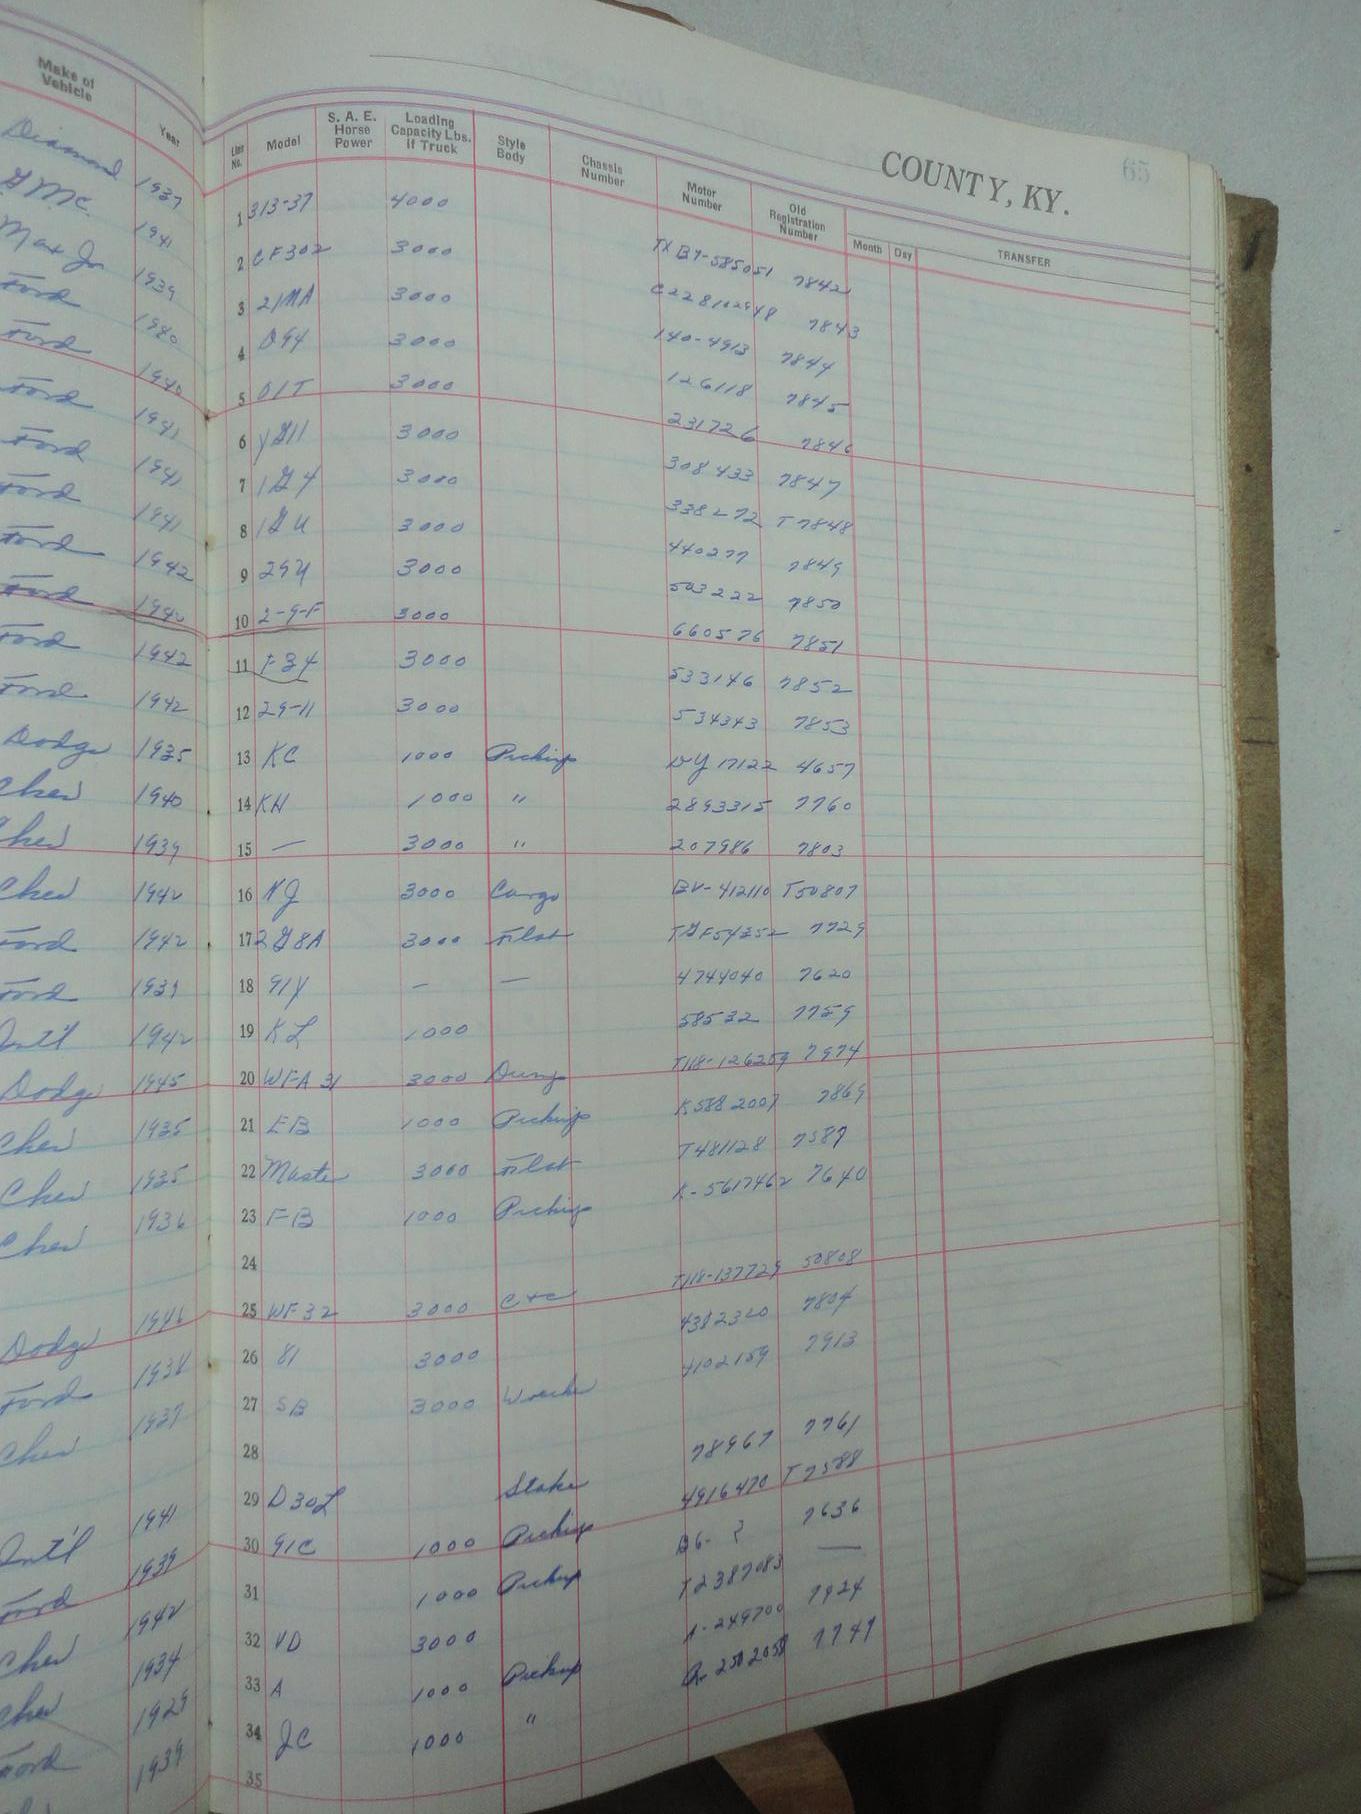 COUNTY, KY. 65
Make of Vehicle Year Line No. Model S. A. E. Horse Power Loading Capacity Lbs. if Truck Style Body Chassis Number Motor Number Old Registration Number Month Day TRANSFER
Diamond 1937 1 313-37 4000 7842
G.M.C. 1941 2 CF302 3000 7843
1939 3 21MA 3000 140-4913 7844
Ford 1940 4 3000 126118 7845
Ford 1940 5 01T 3000 231726 7846
Ford 1941 6 3000 308433 7847
Ford 1941 7 3000 338272 T7848
Ford 1941 8 3000 440277 7849
Ford 1942 9 3000 503222 7850
Ford 1942 10 2-9-F 3000 660576 7851
Ford 1942 11 F34 3000 533146 7852
Ford 1942 12 29-11 3000 534343 7853
Dodge 1935 13 KC 1000 Pickup 4657
Chev 1940 14 KH 1000 " 2893315 7760
Chev 1939 15 — 3000 " 207986 7803
Chev 1942 16 3000 Cargo BV-412110 T50807
Ford 1942 17 2G8A 3000 Flat 7729
Ford 1939 18 91Y — — 4744040 7620
Int'l 1942 19 KL 1000 58532 7759
Dodge 1945 20 WFA 31 3000 Dump T118-126259 7974
Chev 1935 21 EB 1000 Pickup K5882007 7869
Chev 1935 22 Master 3000 Flat T481128 7587
Chev 1936 23 FB 1000 Pickup K-5617462 7640
24
Dodge 1946 25 WF32 3000 C+C T118-137729 50808
Ford 1938 26 81 3000 4382320 7804
Chev 1937 27 SB 3000 4102159 7913
28
Int'l 1941 29 D30L Stake 78967 7761
Ford 1939 30 91C 1000 Pickup 4916470 T7588
Chev 1942 31 1000 Pickup ? 7636
Chev 1934 32 3000 T2387083 —
Ford 1929 33 A 1000 Pickup A-249700 7924
1939 34 JC 1000 " 2502058 7747
35